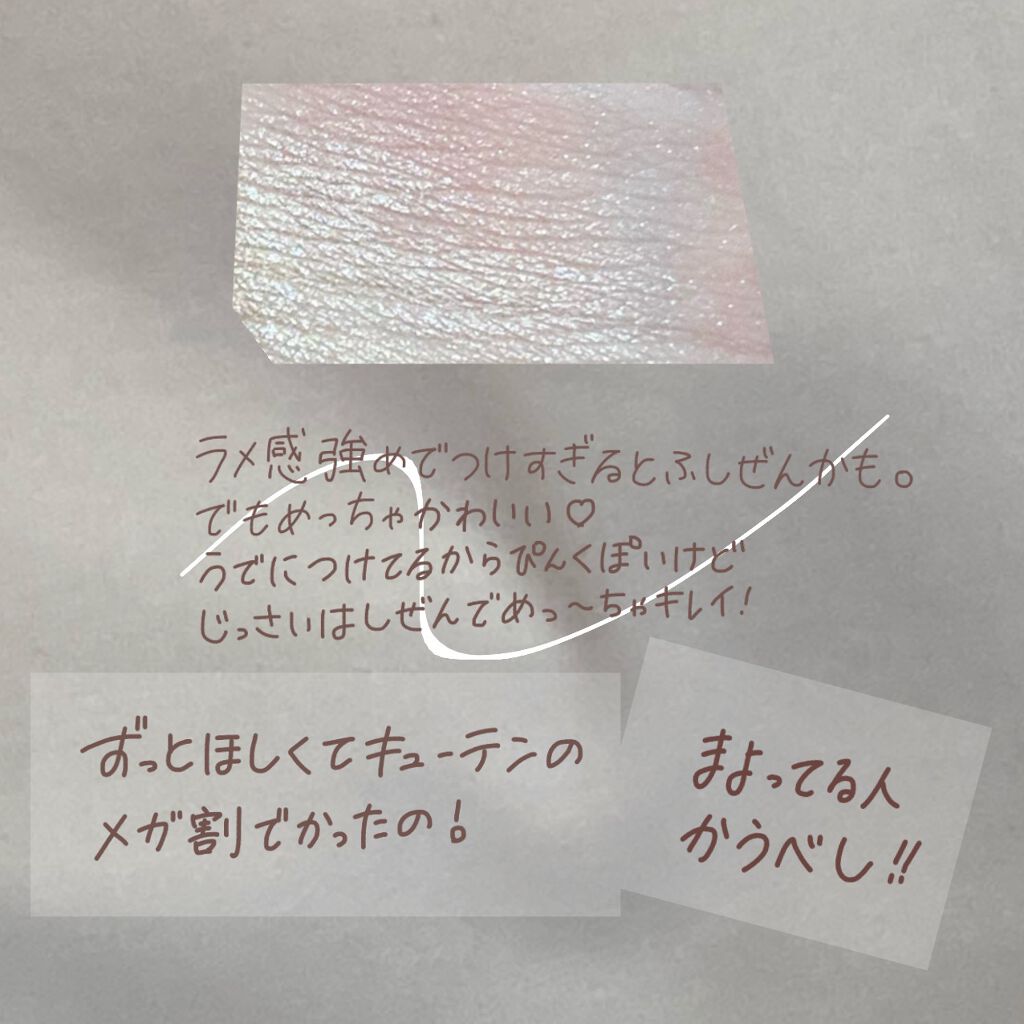 ラメ感強めでつけすぎるとふしぜんかも。
でもめっちゃかわいい♡
うでにつけてるからぴんくぽいけど
じっさいはしぜんでめっ〜ちゃキレイ!
ずっとほしくてキューテンの
メガ割でかったの!
まよってる人
かうべし!!